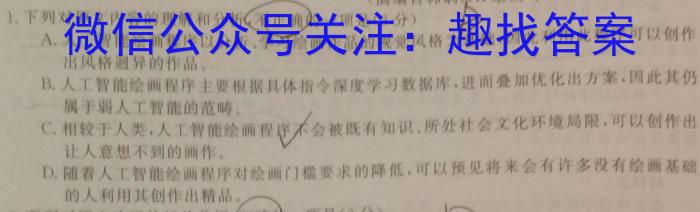 微信公众号关注：趣找答案
1. 下列对
A.
可以创作
出风格迥异的作品。
B. 人工智能绘画程序主要根据具体指令深度学习数据库，进而叠加优化出方案，因此其仍
属于弱人工智能的范畴。
C. 相较于人类，人工智能绘画程序不会被既有知识、所处社会文化环境局限，可以创作出
让人意想不到的画作。
D. 随着人工智能绘画程序对绘画门槛要求的降低，可以预见将来会有许多没有绘画基础
的人利用其创作出精品。